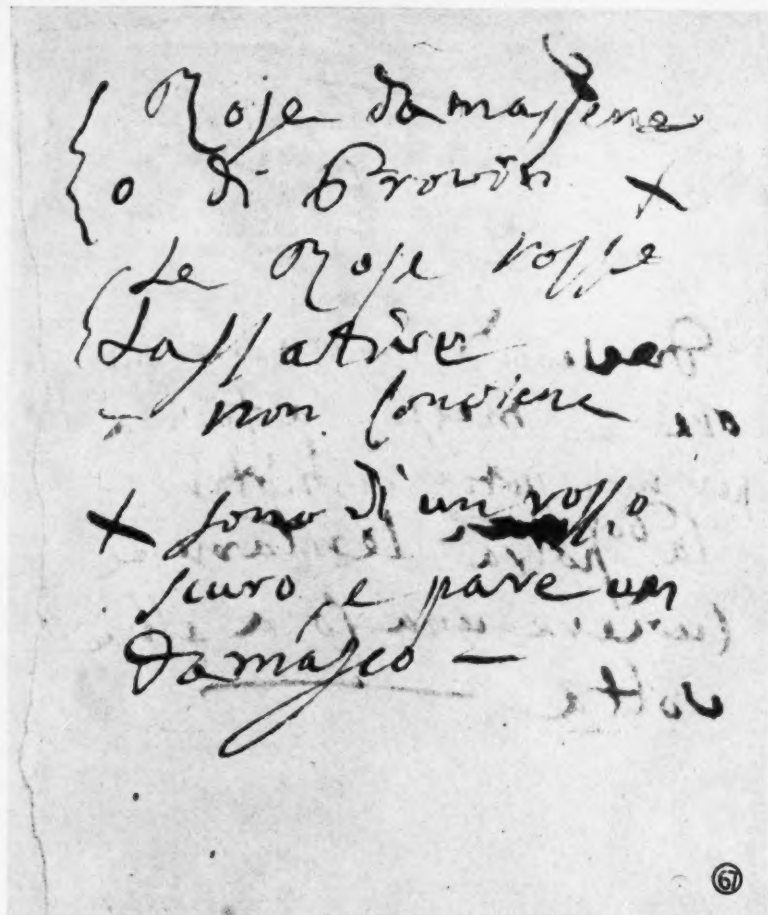 Rose damassene
o di Provin +
Le Rose rosse
Lassative
- non Conviene
+ sono di un rosso
scuro, e pare un
Damasco —
67